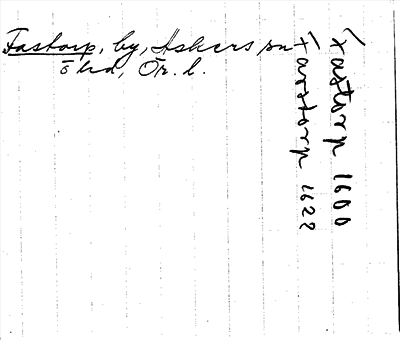 Fastorp, by, Askers sn
ö hd, Ör. l.
Fastorp 1600
Farstorp 1628